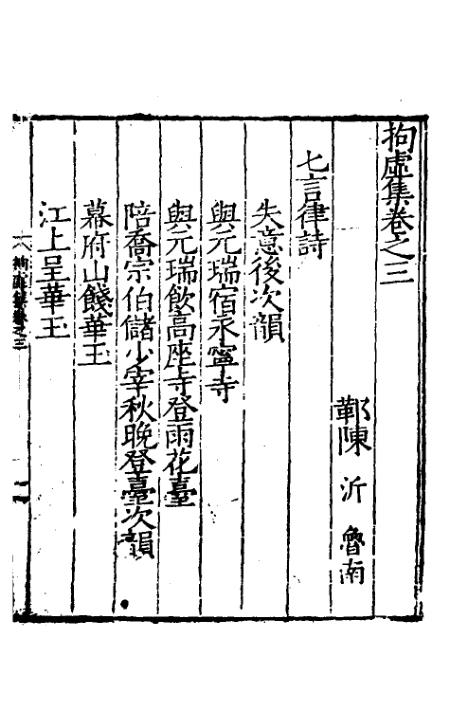 拘虛集卷之三
鄞陳沂魯南
七言律詩
失意後次韻
與元瑞宿永寧寺
與元瑞飲高座寺登雨花臺
陪喬宗伯儲少宰秋晚登臺次韻
幕府山餞華玉
江上呈華玉
拘虛集卷之三
一